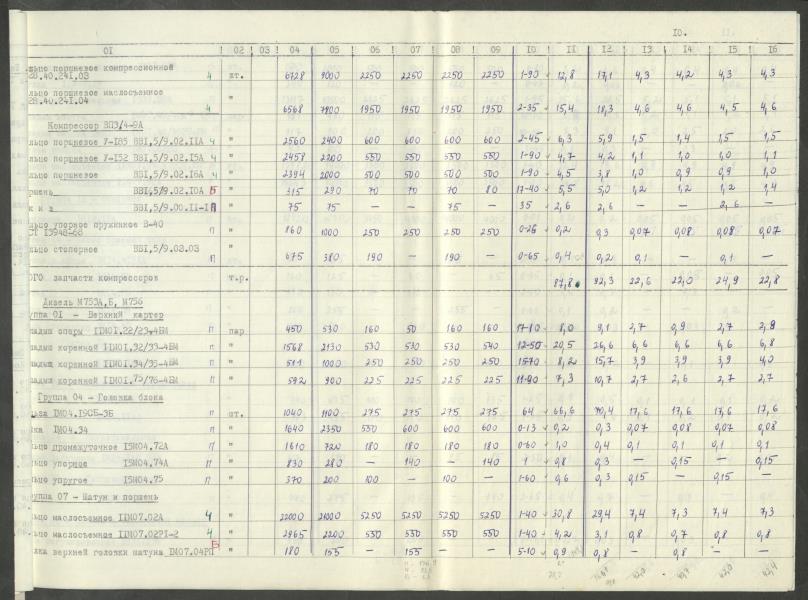 10.
01 02 03 04 05 06 07 08 09 10 11 12 13 14 15 16
льцо поршневое компрессионной
28.40.241.03 ч шт. 6728 9000 2250 2250 2250 2250 1-90 12,8 17,1 4,3 4,2 4,3 4,3
льцо поршневое маслосъемное
28.40.241.04 ч " 6568 7800 1950 1950 1950 1950 2-35 15,4 18,3 4,6 4,6 4,5 4,6
Компрессор ВП3/4-9А
льцо поршневое 7-185 ВВ1,5/9.02.11А ч " 2560 2400 600 600 600 600 2-45 6,3 5,9 1,5 1,4 1,5 1,5
льцо поршневое 7-152 ВВ1,5/9.02.15А ч " 2458 2200 550 550 550 550 1-90 4,7 4,2 1,1 1,0 1,0 1,1
льцо поршневое ВВ1,5/9.02.16А ч " 2394 2000 500 500 500 500 1-90 4,5 3,8 1,0 0,9 0,9 1,0
ршень ВВ1,5/9.02.10А Б " 315 290 70 70 70 80 17-40 5,5 5,0 1,2 1,2 1,2 1,4
ВВ1,5/9.00.11-1 П " 75 75 — — 75 — 35 2,6 2,6 — — 2,6 —
льцо упорное пружинное В-40
СТ 13940-68 П " 160 1000 250 250 250 250 0-26 0,2 0,3 0,07 0,08 0,08 0,07
льцо стопорное ВВ1,5/9.03.03 П " 675 380 190 — 190 — 0-65 0,4 0,2 0,1 — 0,1 —
ОГО запчасти компрессоров т.р. 87,8 92,3 22,6 22,0 24,9 22,8
Дизель М753А,Б, М756
уппа 01 - Верхний картер
ладыш опоры 11М01.22/23-4БМ П пар 450 530 160 50 160 160 17-10 8,0 9,1 2,7 0,9 2,7 2,8
ладыш коренной 11М01.32/33-4БМ П " 1568 2130 530 530 530 540 12-50 20,5 26,6 6,6 6,6 6,6 6,8
ладыш коренной 11М01.34/35-4БМ П " 511 1000 250 250 250 250 15-70 8,2 15,7 3,9 3,9 3,9 4,0
ладыш коренной 11М01.75/76-4БМ П " 592 900 225 225 225 225 11-90 7,3 10,7 2,7 2,6 2,7 2,7
Группа 04 - Головка блока
ьза 1М04.19СБ-3Б П шт. 1040 1100 275 275 275 275 64 66,6 70,4 17,6 17,6 17,6 17,6
1М04.34 П " 1640 2350 550 600 600 600 0-13 0,2 0,3 0,07 0,08 0,07 0,08
льцо промежуточное 15М04.72А П " 1610 720 180 180 180 180 0-60 1,0 0,4 0,1 0,1 0,1 0,1
льцо упорное 15М04.74А П " 830 280 — 140 — 140 1 0,8 0,3 — 0,15 — 0,15
льцо упругое 15М04.75 П " 370 200 100 — 100 — 1-60 0,6 0,3 0,15 — 0,15 —
руппа 07 - Шатун и поршень
льцо маслосъемное 11М07.02А ч " 22000 21000 5250 5250 5250 5250 1-40 30,8 29,4 7,4 7,3 7,4 7,3
льцо маслосъемное 11М07.02Р1-2 ч " 2965 2200 550 550 550 550 1-40 4,2 3,1 0,8 0,7 0,8 0,8
лка верхней головки шатуна 1М07.04РП Б " 180 155 — 155 — — 5-10 0,9 0,8 — 0,8 — —